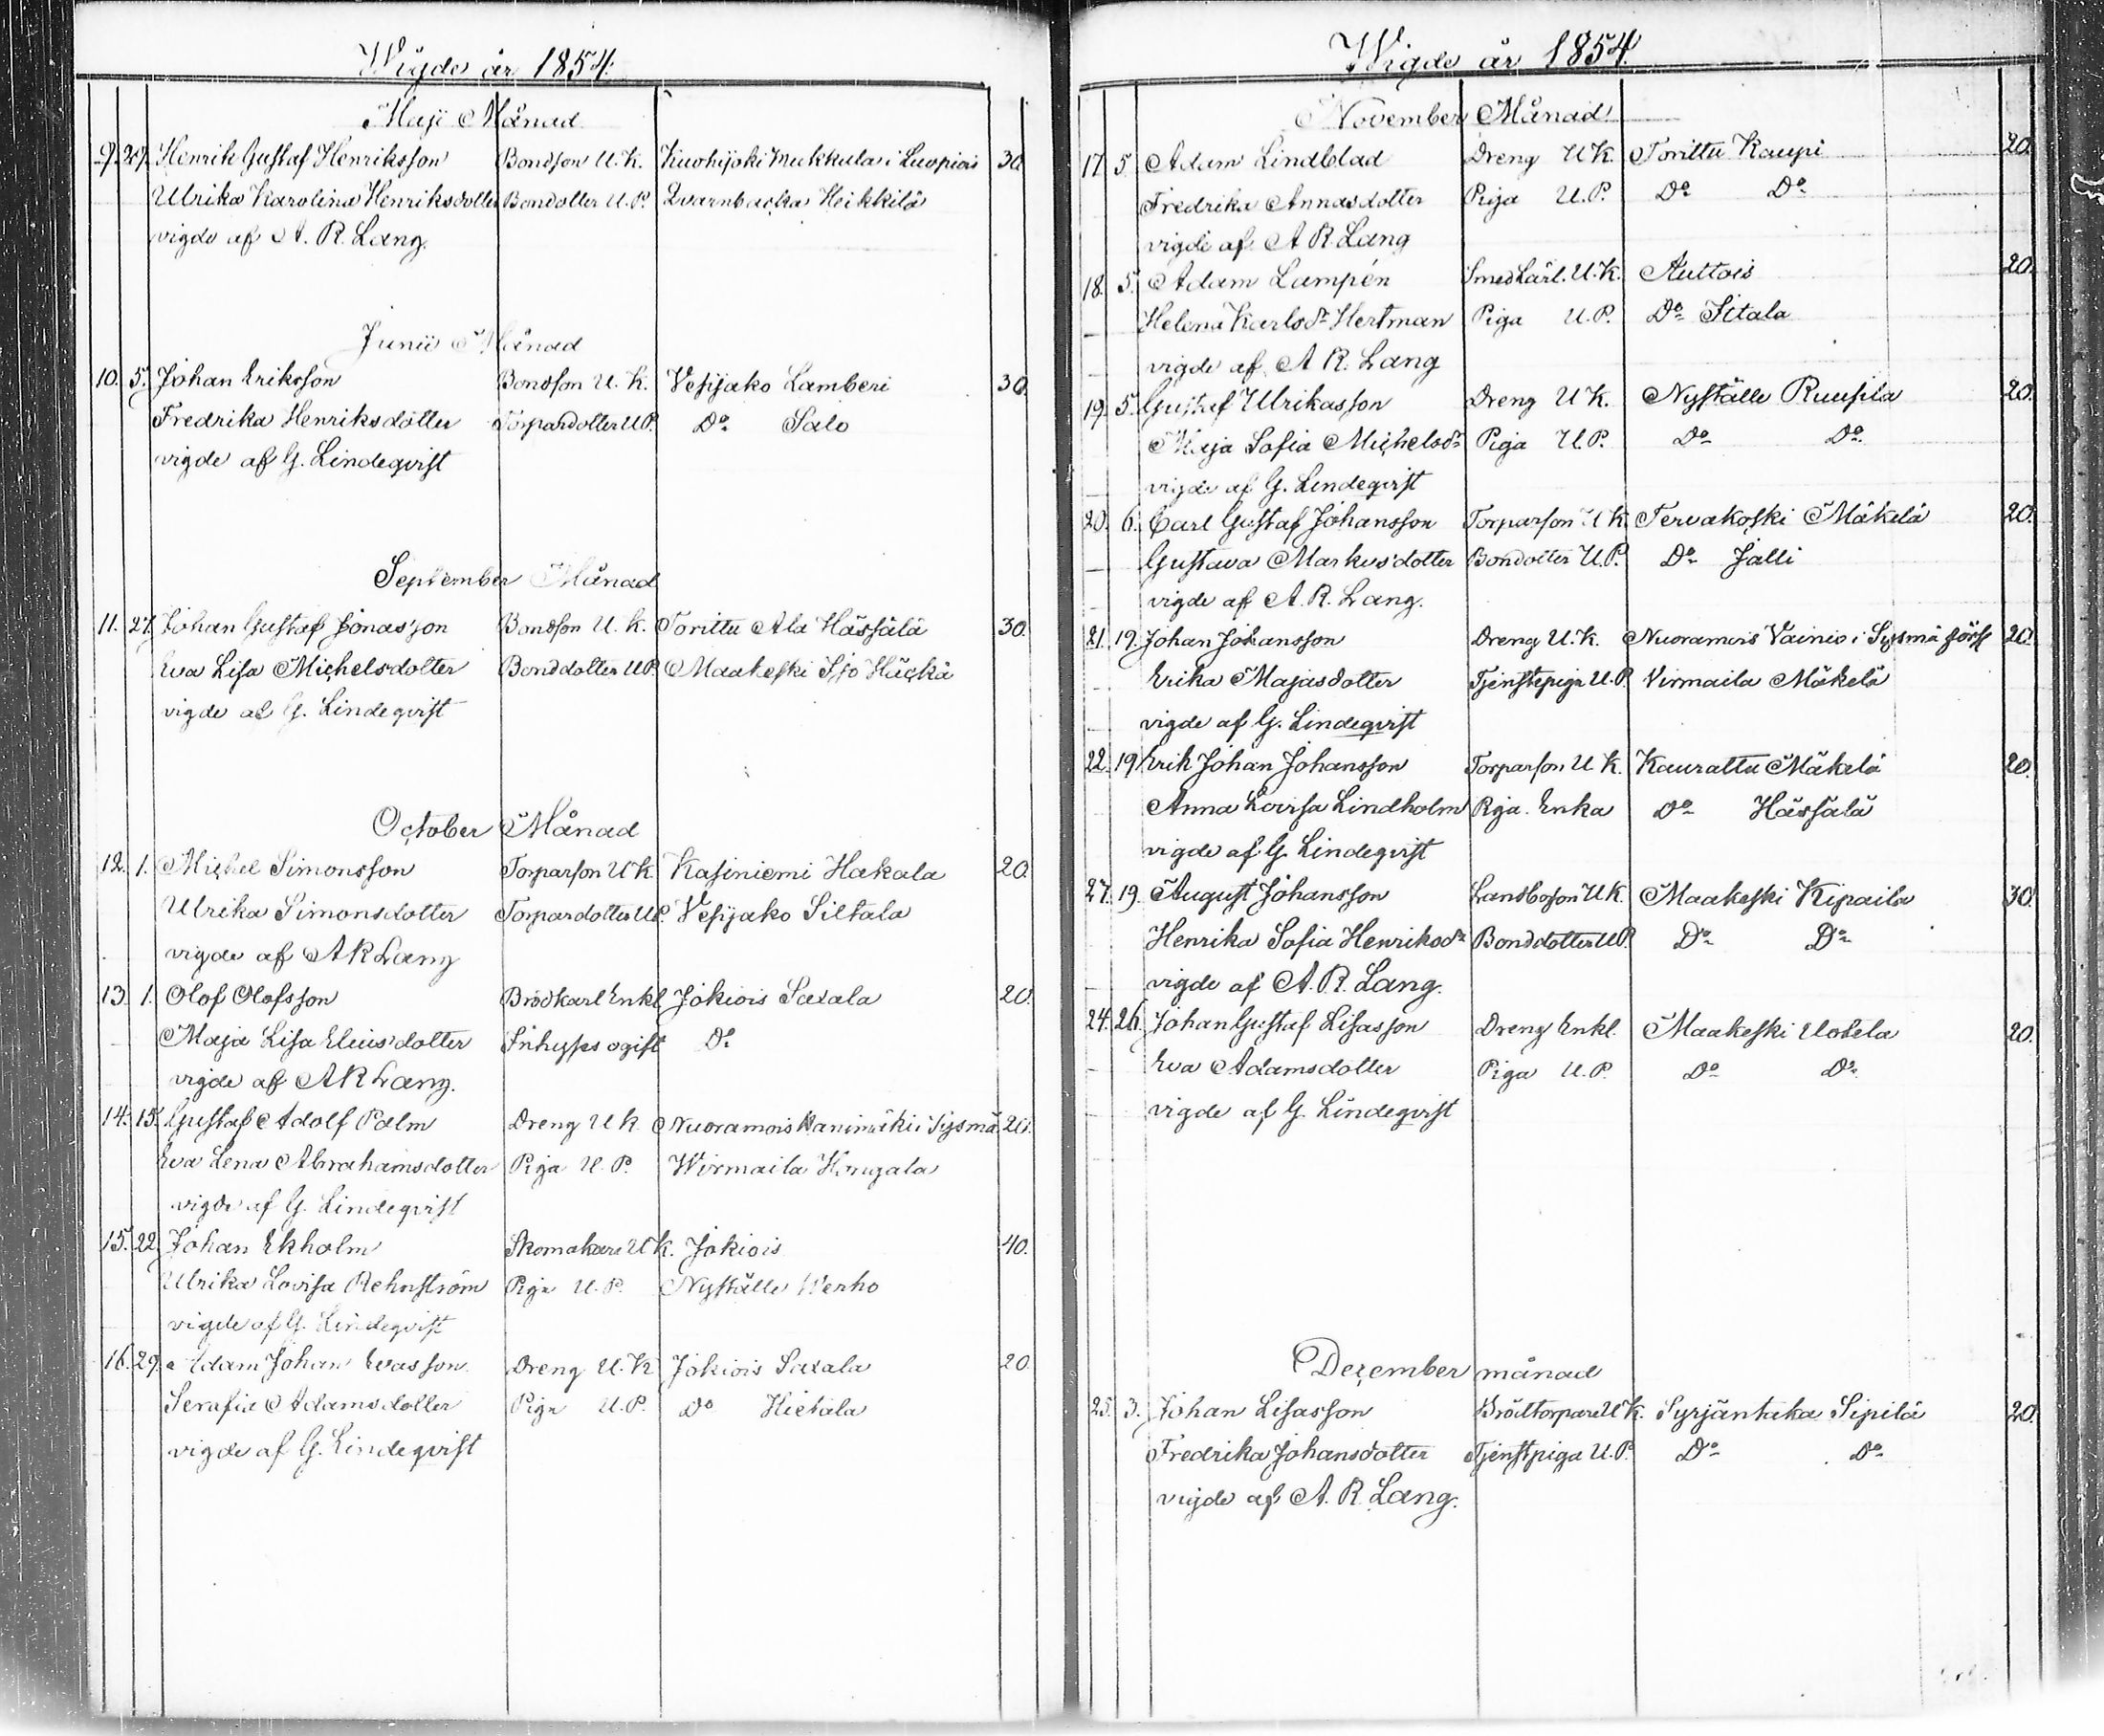 Wigde år 1854.
Maji Månad
9. 29. Henrik Gustaf Henriksson Bondson U. K. Kuohijoki Mukkula i Luopiois 30.
Ulrika Karolina Henriksdotter Bondotter U. P. Qvarnbacka Heikkilä
vigde af A. R. Lang.
Junii Månad
10. 5. Johan Eriksson Bondson U. K. Vesijako Lamberi 30.
Fredrika Henriksdotter Torpardotter U P. Do Salo
vigde af G. Lindeqvist
September Månad
11. 27. Johan Gustaf Jonasson Bondson U. K. Torittu Ala Hässälä 30.
Eva Lisa Michelsdotter Bonddotter U P. Maakeski Iso Häckä
vigde af G. Lindeqvist
October Månad
12. 1. Michel Simonsson Torparson U K Kasiniemi Hakala 20.
Ulrika Simonsdotter Torpardotter U P. Vesijako Siltala
vigde af A R Lang
13. 1. Olof Olofsson Brödkarl Enkl Jokiois Saxala 20.
Maja Lisa Eliusdotter Inhyses ogift Do
vigde af A R Lang.
14. 15. Gustaf Adolf Palm Dreng U K Nuoramois Kanimäki i Sysmä 20.
Eva Lena Abrahamsdotter Piga U. P. Wirmaila
vigde af G. Lindeqvist
15. 22. Johan Ekholm Skomakare U K. Jokiois 40.
Ulrika Lovisa Rehnström Piga U. P. Nyställe Werho
vigde af G. Lindeqvist
16. 29. Adam Johan Evasson Dreng U. K Jokiois Saxala 20.
Serafia Adamsdotter Piga U. P. Do Hietala
vigde af G. Lindeqvist
Wigde år 1854.
November Månad
17. 5. Adam Lindblad Dreng U K. Torittu Kaupi 20.
Fredrika Annasdotter Piga U. P. Do Do
vigde af A R. Lang
18. 5. Adam Lampén Smedlärl. U. K. Auttois 20.
Helena Karlsdr Hertman Piga U. P. Do Iitala
vigde af A R. Lang
19. 5. Gustaf Ulrikasson Dreng U K. Nyställe Ruusila 20.
Maja Sofia Michelsdr Piga U. P. Do Do
vigde af G. Lindeqvist
20. 6. Carl Gustaf Johansson Torparson U K Tervakoski Mäkelä 20.
Gustava Markusdotter Bondotter U. P. Do Jalli
vigde af A. R. Lang.
21. 19. Johan Johansson Dreng U. K. Nuoramois Vainio i Sysmä förs 20.
Erika Majasdotter Tjenstepiga U. P. Virmaila Mäkelä
vigde af G. Lindeqvist
22. 19 Erik Johan Johansson Torparson U. K. Kaurattu Mäkelä 20.
Anna Lovisa Lindholm Piga. Enka Do Hässälä
vigde af G. Lindeqvist
27. 19. August Johansson Landboson U K. Maakeski Kipaila 30.
Henrika Sofia Henriksdr Bonddotter U P. Do Do
vigde af A. R. Lang.
24. 26. Johan Gustaf Lisasson Dreng Enkl. Maakeski Uotela 20.
Eva Adamsdotter Piga U. P. Do Do
vigde af G. Lindeqvist
December månad
25. 3. Johan Lisasson Brödtorpare U K. Syrjäntaka Sipilä 20.
Fredrika Johansdotter Tjenstpiga U. P. Do Do
vigde af A. R. Lang.